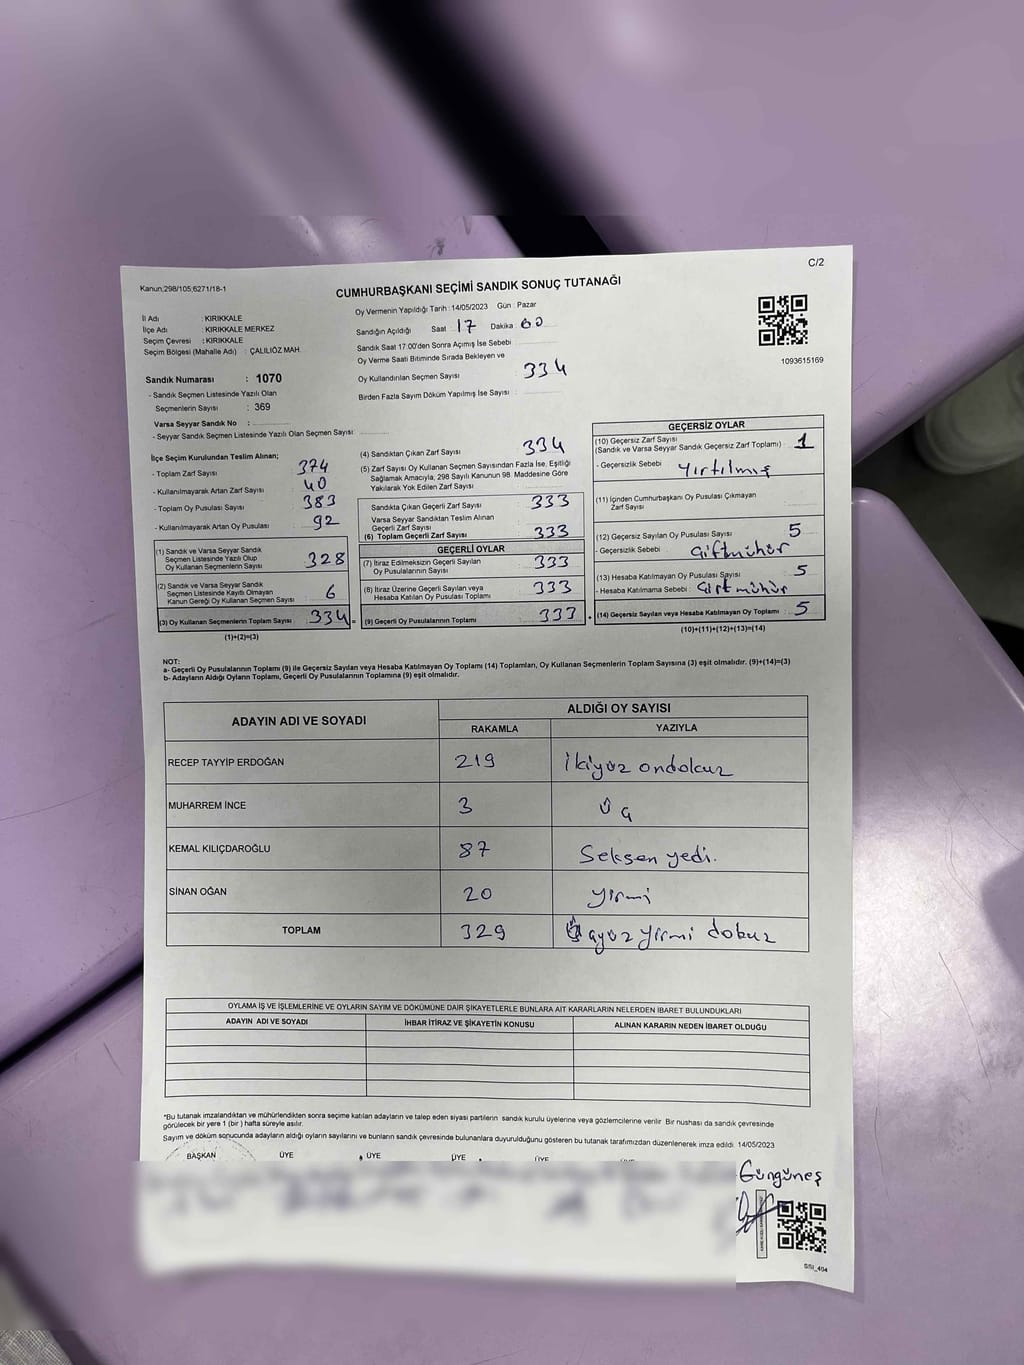 C/2
Kanun;298/105;6271/18-1
CUMHURBAŞKANI SEÇİMİ SANDIK SONUÇ TUTANAĞI
İl Adı : KIRIKKALE
İlçe Adı : KIRIKKALE MERKEZ
Seçim Çevresi : KIRIKKALE
Seçim Bölgesi (Mahalle Adı) : ÇALILIÖZ MAH.
Oy Vermenin Yapıldığı Tarih : 14/05/2023 Gün : Pazar
Sandığın Açıldığı Saat 17 Dakika : 00
Sandık Saat 17:00'den Sonra Açımış İse Sebebi
Oy Verme Saati Bitiminde Sırada Bekleyen ve
Oy Kullandırılan Seçmen Sayısı : 334
Birden Fazla Sayım Döküm Yapılmış İse Sayısı :
1093615169
Sandık Numarası : 1070
- Sandık Seçmen Listesinde Yazılı Olan
Seçmenlerin Sayısı : 369
Varsa Seyyar Sandık No :
- Seyyar Sandık Seçmen Listesinde Yazılı Olan Seçmen Sayısı
İlçe Seçim Kurulundan Teslim Alınan;
- Toplam Zarf Sayısı : 374
- Kullanılmayarak Artan Zarf Sayısı : 40
- Toplam Oy Pusulası Sayısı : 383
- Kullanılmayarak Artan Oy Pusulası : 92
(1) Sandık ve Varsa Seyyar Sandık
Seçmen Listesinde Yazılı Olup
Oy Kullanan Seçmenlerin Sayısı : 328
(2) Sandık ve Varsa Seyyar Sandık
Seçmen Listesinde Kayıtlı Olmayan
Kanun Gereği Oy Kullanan Seçmen Sayısı : 6
(3) Oy Kullanan Seçmenlerin Toplam Sayısı : 334 =
(1)+(2)=(3)
(4) Sandıktan Çıkan Zarf Sayısı : 334
(5) Zarf Sayısı Oy Kullanan Seçmen Sayısından Fazla İse, Eşitliği
Sağlamak Amacıyla, 298 Sayılı Kanunun 98. Maddesine Göre
Yakılarak Yok Edilen Zarf Sayısı :
Sandıkta Çıkan Geçerli Zarf Sayısı : 333
Varsa Seyyar Sandıktan Teslim Alınan
Geçerli Zarf Sayısı :
(6) Toplam Geçerli Zarf Sayısı : 333
GEÇERLİ OYLAR
(7) İtiraz Edilmeksizin Geçerli Sayılan
Oy Pusulalarının Sayısı : 333
(8) İtiraz Üzerine Geçerli Sayılan veya
Hesaba Katılan Oy Pusulası Toplamı : 333
(9) Geçerli Oy Pusulalarının Toplamı : 333 +
GEÇERSİZ OYLAR
(10) Geçersiz Zarf Sayısı
(Sandık ve Varsa Seyyar Sandık Geçersiz Zarf Toplamı) : 1
- Geçersizlik Sebebi : yırtılmış
(11) İçinden Cumhurbaşkanı Oy Pusulası Çıkmayan
Zarf Sayısı
(12) Geçersiz Sayılan Oy Pusulası Sayısı : 5
- Geçersizlik Sebebi : Çiftmühür
(13) Hesaba Katılmayan Oy Pusulası Sayısı : 5
- Hesaba Katılmama Sebebi : Çiftmühür
(14) Geçersiz Sayılan veya Hesaba Katılmayan Oy Toplamı : 5
(10)+(11)+(12)+(13)=(14)
NOT:
a- Geçerli Oy Pusulalarının Toplamı (9) ile Geçersiz Sayılan veya Hesaba Katılmayan Oy Toplamı (14) Toplamları, Oy Kullanan Seçmenlerin Toplam Sayısına (3) eşit olmalıdır. (9)+(14)=(3)
b- Adayların Aldığı Oyların Toplamı, Geçerli Oy Pusulalarının Toplamına (9) eşit olmalıdır.
ADAYIN ADI VE SOYADI ALDIĞI OY SAYISI
RAKAMLA YAZIYLA
RECEP TAYYİP ERDOĞAN 219 ikiyüz ondokuz
MUHARREM İNCE 3 Üç
KEMAL KILIÇDAROĞLU 87 Seksen yedi.
SİNAN OĞAN 20 yirmi
TOPLAM 329 Üçyüz yirmi dokuz
OYLAMA İŞ VE İŞLEMLERİNE VE OYLARIN SAYIM VE DÖKÜMÜNE DAİR ŞİKAYETLERLE BUNLARA AİT KARARLARIN NELERDEN İBARET BULUNDUKLARI
ADAYIN ADI VE SOYADI İHBAR İTİRAZ VE ŞİKAYETİN KONUSU ALINAN KARARIN NEDEN İBARET OLDUĞU
*Bu tutanak imzalandıktan ve mühürlendikten sonra seçime katılan adayların ve talep eden siyasi partilerin sandık kurulu üyelerine veya gözlemcilerine verilir. Bir nushası da sandık çevresinde
görülecek bir yere 1 (bir) hafta süreyle asılır.
Sayım ve döküm sonucunda adayların aldığı oyların sayılarını ve bunların sandık çevresinde bulunanlara duyurulduğunu gösteren bu tutanak tarafımızdan düzenlenerek imza edildi. 14/05/2023
BAŞKAN ÜYE ÜYE ÜYE ÜYE
Güngüneş